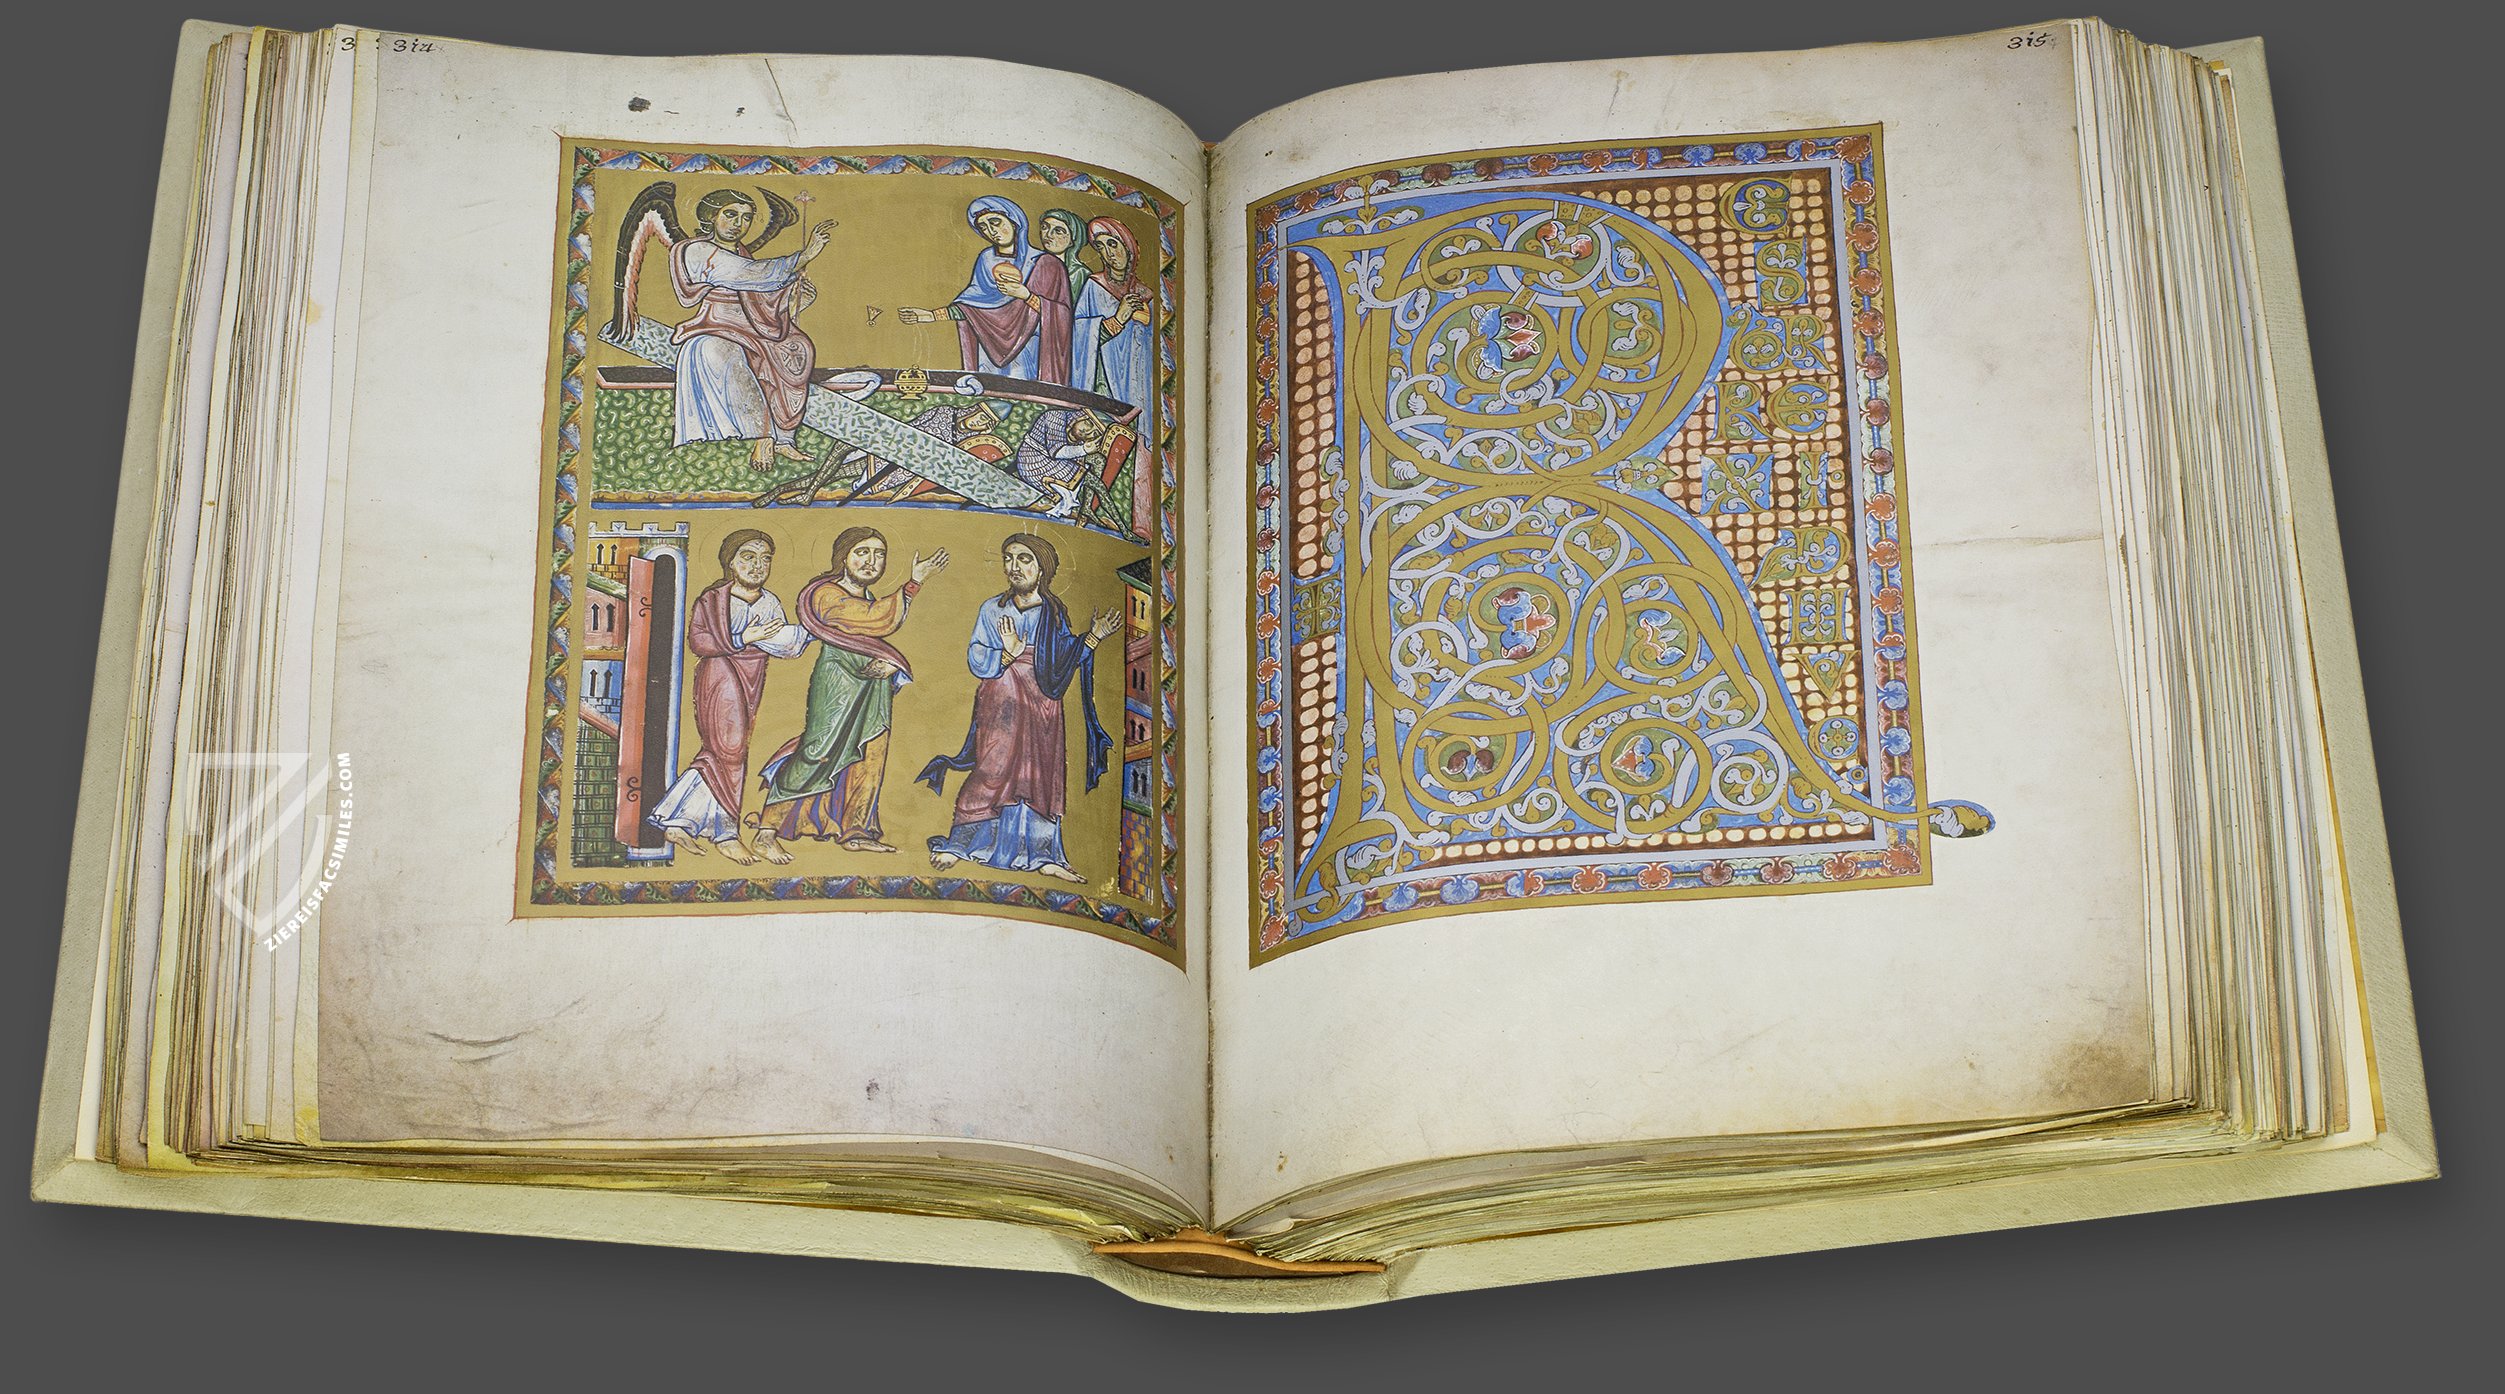 3 314
315
R
E
S
VR
RE
XI
H
V
ZIEREISFACSIMILES.COM